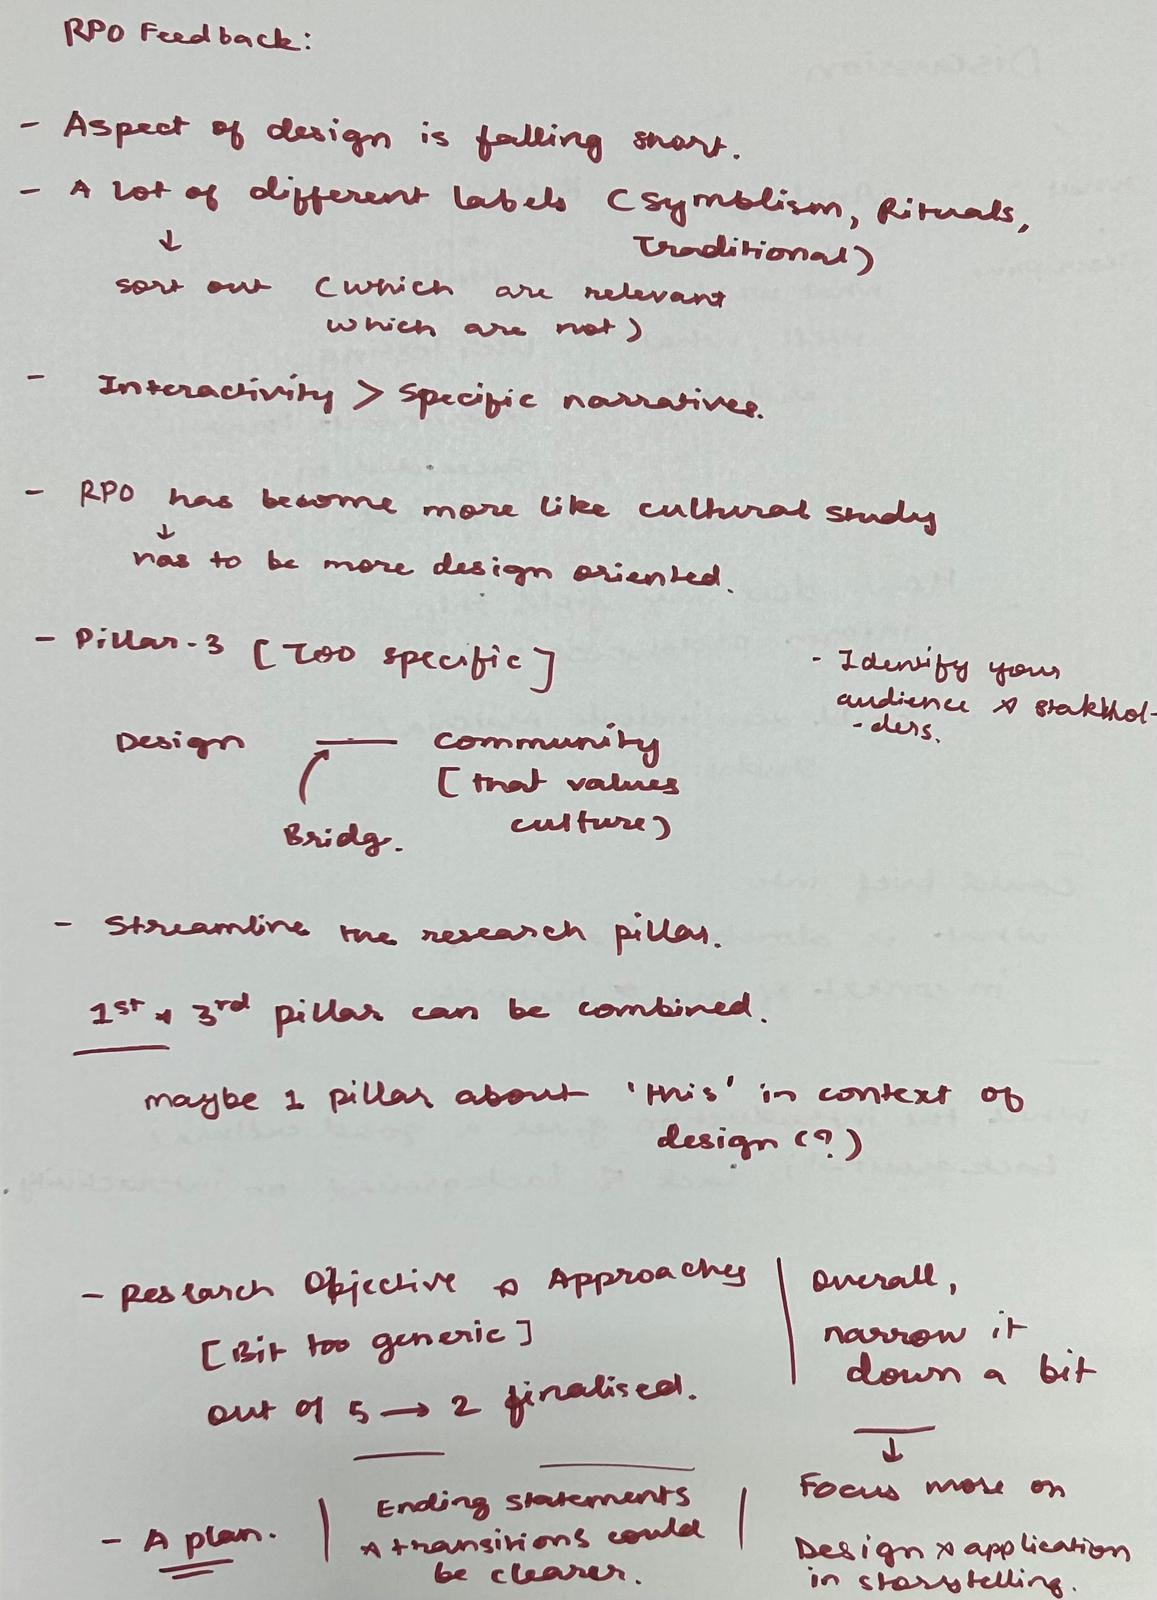 RPO Feedback:
- Aspect of design is falling short.
- A lot of different labels (Symblism, Rituals,
Traditional)
↓
sort out (which are relevant
which are not)
- Interactivity > Specific narratives.
- RPO has become more like cultural study
↓
has to be more design oriented.
- Pillar-3 [Too specific]
- Identify your
audience & stakthol-
-ders.
Design — community
[that values
culture)
Bridg.
- Streamline the research pillar.
1st & 3rd pillar can be combined.
maybe 1 pillar about 'this' in context of
design (?)
- Research Objective & Approaches
[Bit too generic]
out of 5 → 2 finalised.
overall,
narrow it
down a bit
↓
Focus more on
Design & application
in storytelling.
- A plan.
Ending statements
& transitions could
be clearer.